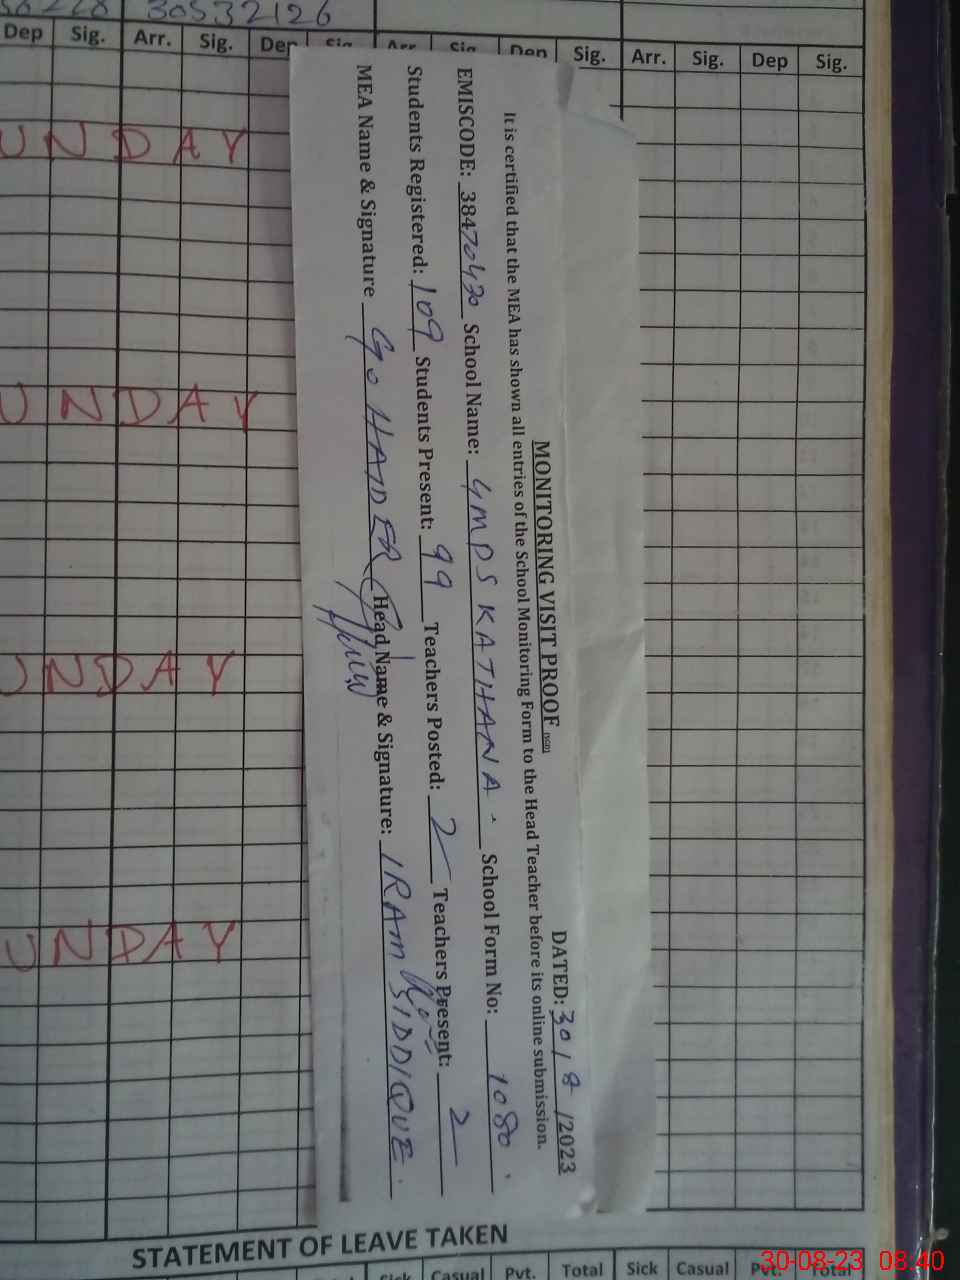 30532126
Dep Sig. Arr. Sig. Dep Sig. Arr. Sig. Dep Sig. Arr. Sig. Dep Sig.
UNDAY
UNDAY
UNDAY
UNDAY
MONITORING VISIT PROOF
DATED: 30/8/2023
It is certified that the MEA has shown all entries of the School Monitoring Form to the Head Teacher before its online submission.
EMISCODE: 38470430 School Name: GMPS KATHANA. School Form No: 1080.
Students Registered: 109 Students Present: 99 Teachers Posted: 2 Teachers Present: 2
MEA Name & Signature G. HAIDER Head Name & Signature: IRAM SIDDIQUE.
STATEMENT OF LEAVE TAKEN
Sick Casual Pvt. Total Sick Casual Pvt. Total
30-08-23 08:40